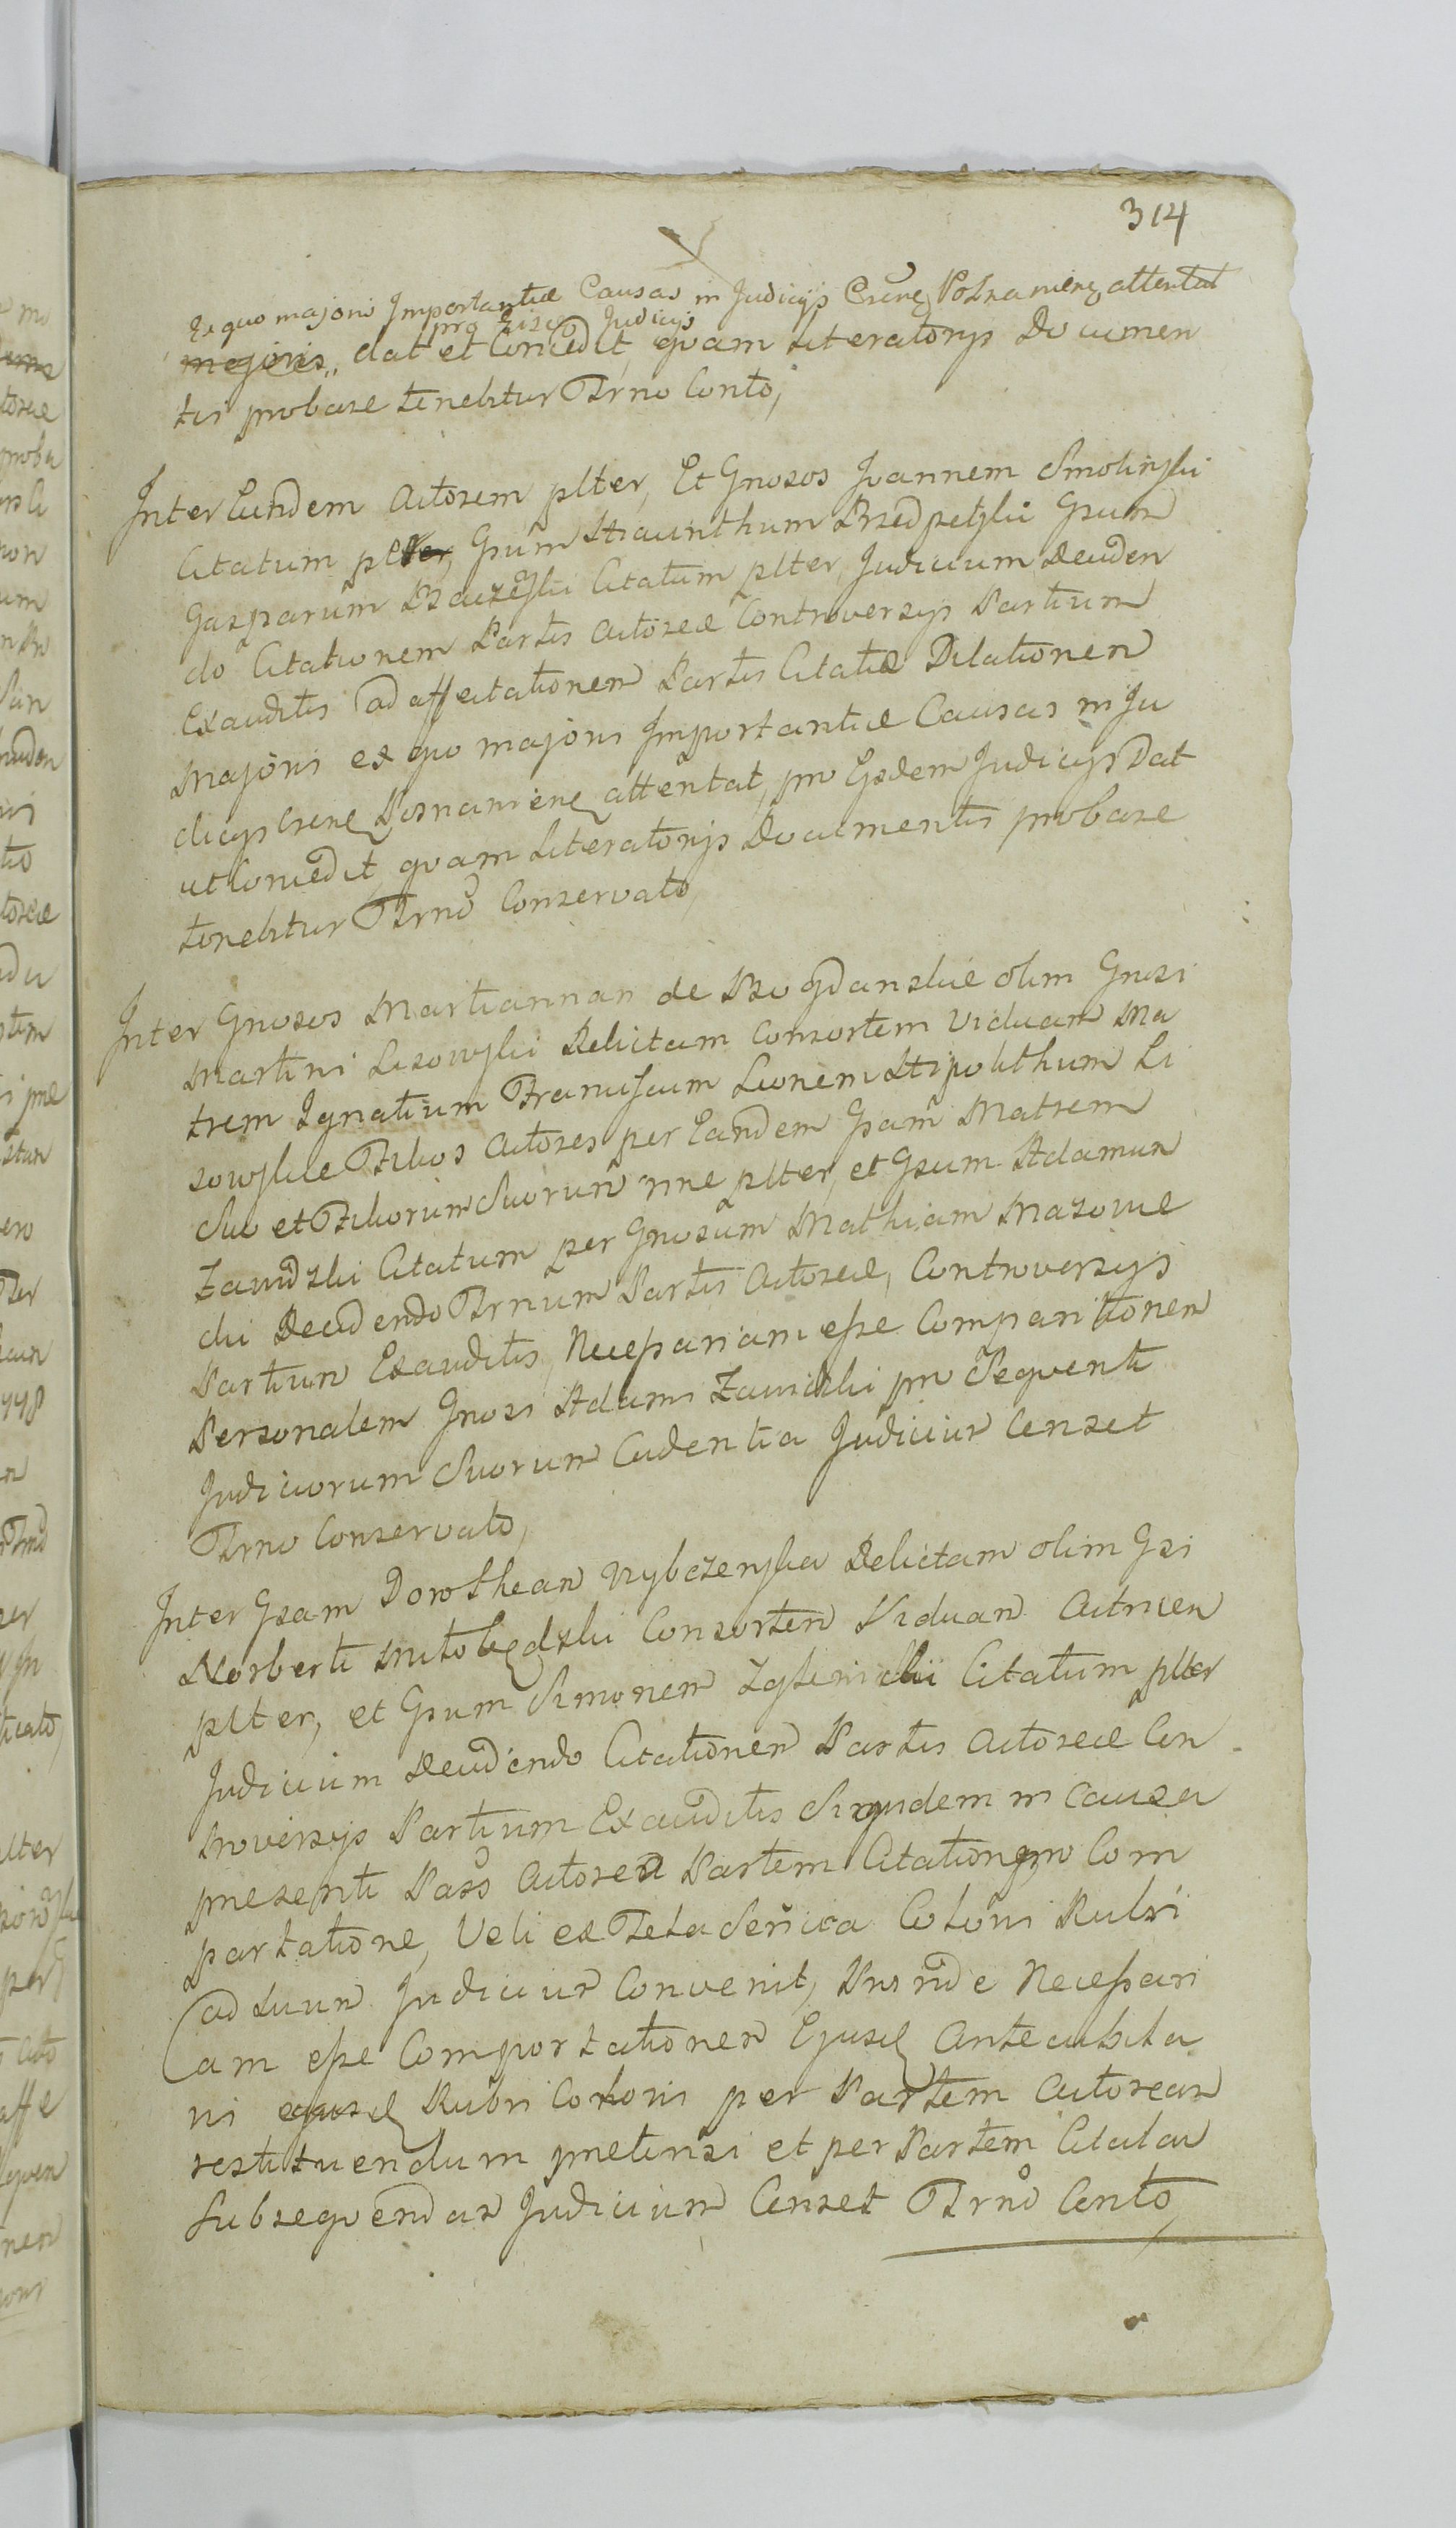 314
Ex quo majoris Importantiæ Causas in Judicijs Crens Posnaniens attentat
pro Eisd Judicijs
majoris dat et Concedit quam Literatorijs Documen
tis probare tenebitur Trno Conto,
Inter Eundem Actorem plter, Et Gnosos Joannem Smolinski
Citatum plter, Gsum Hiacinthum Przedpelski Gsum
Gasparum Braczeski Citatum plter, Judicium Deciden
do Citationem Partis Actoreæ Controversijs Partium
Exauditis ad affectationem Partis Citatæ Dilationem
Majoris ex quo majoris Importantiæ Causas in Ju
dicijs Crens Posnaniens attentat, pro Eisdem Judicijs Dat
et Concedit, quam Literatorijs Documentis probare
tenebitur Trno Conservato,
Inter Gnosos Martiannam de Bogdanskie olim Gnosi
Martini Lisowski Relictam Consortem Viduam Ma
trem Ignatium Franciscum Leonem Hipolithum Li
sowskie Filios Actores per Eandem Gsam Matrem
Suo et Filiorum Suorum nne plter, et Gsum Adamum
Zawidzki Citatum per Gnosum Mathiam Mazowie
cki Decidendo Trnum Partis Actoreæ, Controversijs
Partium Exauditis, Necessariam esse Comparitionem
Personalem Gnosi Adami Zawidzki pro Sequenti
Judiciorum Suorum Cadentia Judicium Censet
Trno Conservato,
Inter Gsam Dorotheam Rybczenska Relictam olim Gsi
Norberti Mitolędzki Consortem Viduam Actricem
plter, et Gsum Simonem Zglenicki Citatum plter
Judicium Decidendo Citationem Partis Actoreæ Con
troversijs Partium Exauditis Siquidem in Causa
presenti Pars Actorea Partem Citatam pro Com
partatione, Veli ex Tela Serica Coloris Rubri
ad Suum Judicium Convenit, Proinde Necessari
am esse Comportationem Ejusd Antecubita
ni ejusd Rubri Coloris per Partem Actoream
restituendum pretensi et per Partem Citatam
Subsequendam Judicium Censet Trno Conto,